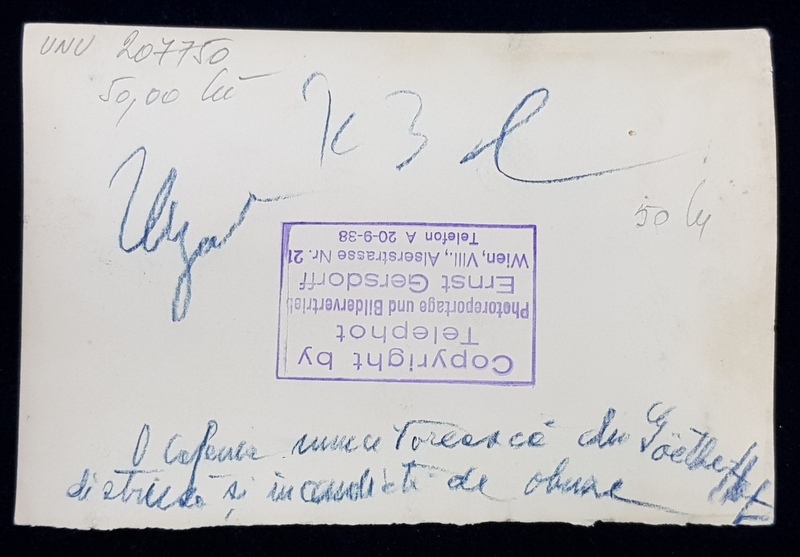 UNU 207750
50,00 lei
K 3
Urgent
50 lei
Copyright by
Telephot
Photoreportage und Bildervertrieb
Ernst Gersdorff
Wien, VIII., Alserstrasse Nr. 21
Telefon A 20-9-38
O cafenea muncitorească din Göethehof
distrusă și incendiată de obuze